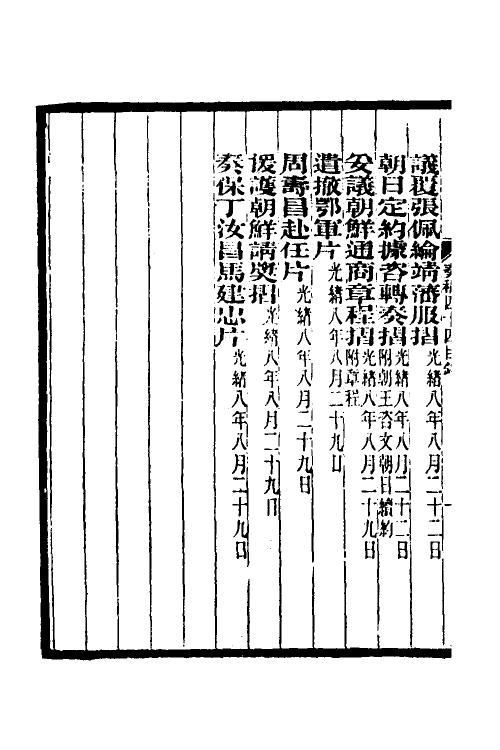 議覆張佩綸靖藩服摺光緒八年八月二十二日
朝日定約據咨轉奏摺光緒八年八月二十二日附朝王咨文朝日續約
妥議朝鮮通商章程摺光緒八年八月二十九日附章程
遣撤鄂軍片光緒八年八月二十九日
周壽昌赴任片光緒八年八月二十九日
援護朝鮮請獎摺光緒八年八月二十九日
奏保丁汝昌馬建忠片光緒八年八月二十九日